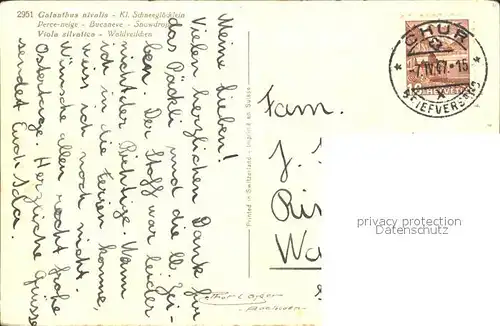 2951 Galanthus nivalis - Kl. Schneeglöcklein
Perce-neige - Bucaneve - Snowdrop
Viola silvatica - Waldveilchen
Meine Lieben!
Vielen herzlichen Dank für
das Päckli und die lb. Zei-
len. Der Stoff war leider
nicht der Richtige. Wann
ich in die Ferien komme,
weiss ich noch nicht.
Wünsche allen recht frohe
Ostertage. Herzliche Grüsse
sendet Euch Ida.
Printed in Switzerland - Imprimé en Suisse
CHUR
7.IV.47.-15
BRIEFVERSAND
HELVETIA
Fam.
J.
Ris
Wa
privacy protection
Datenschutz